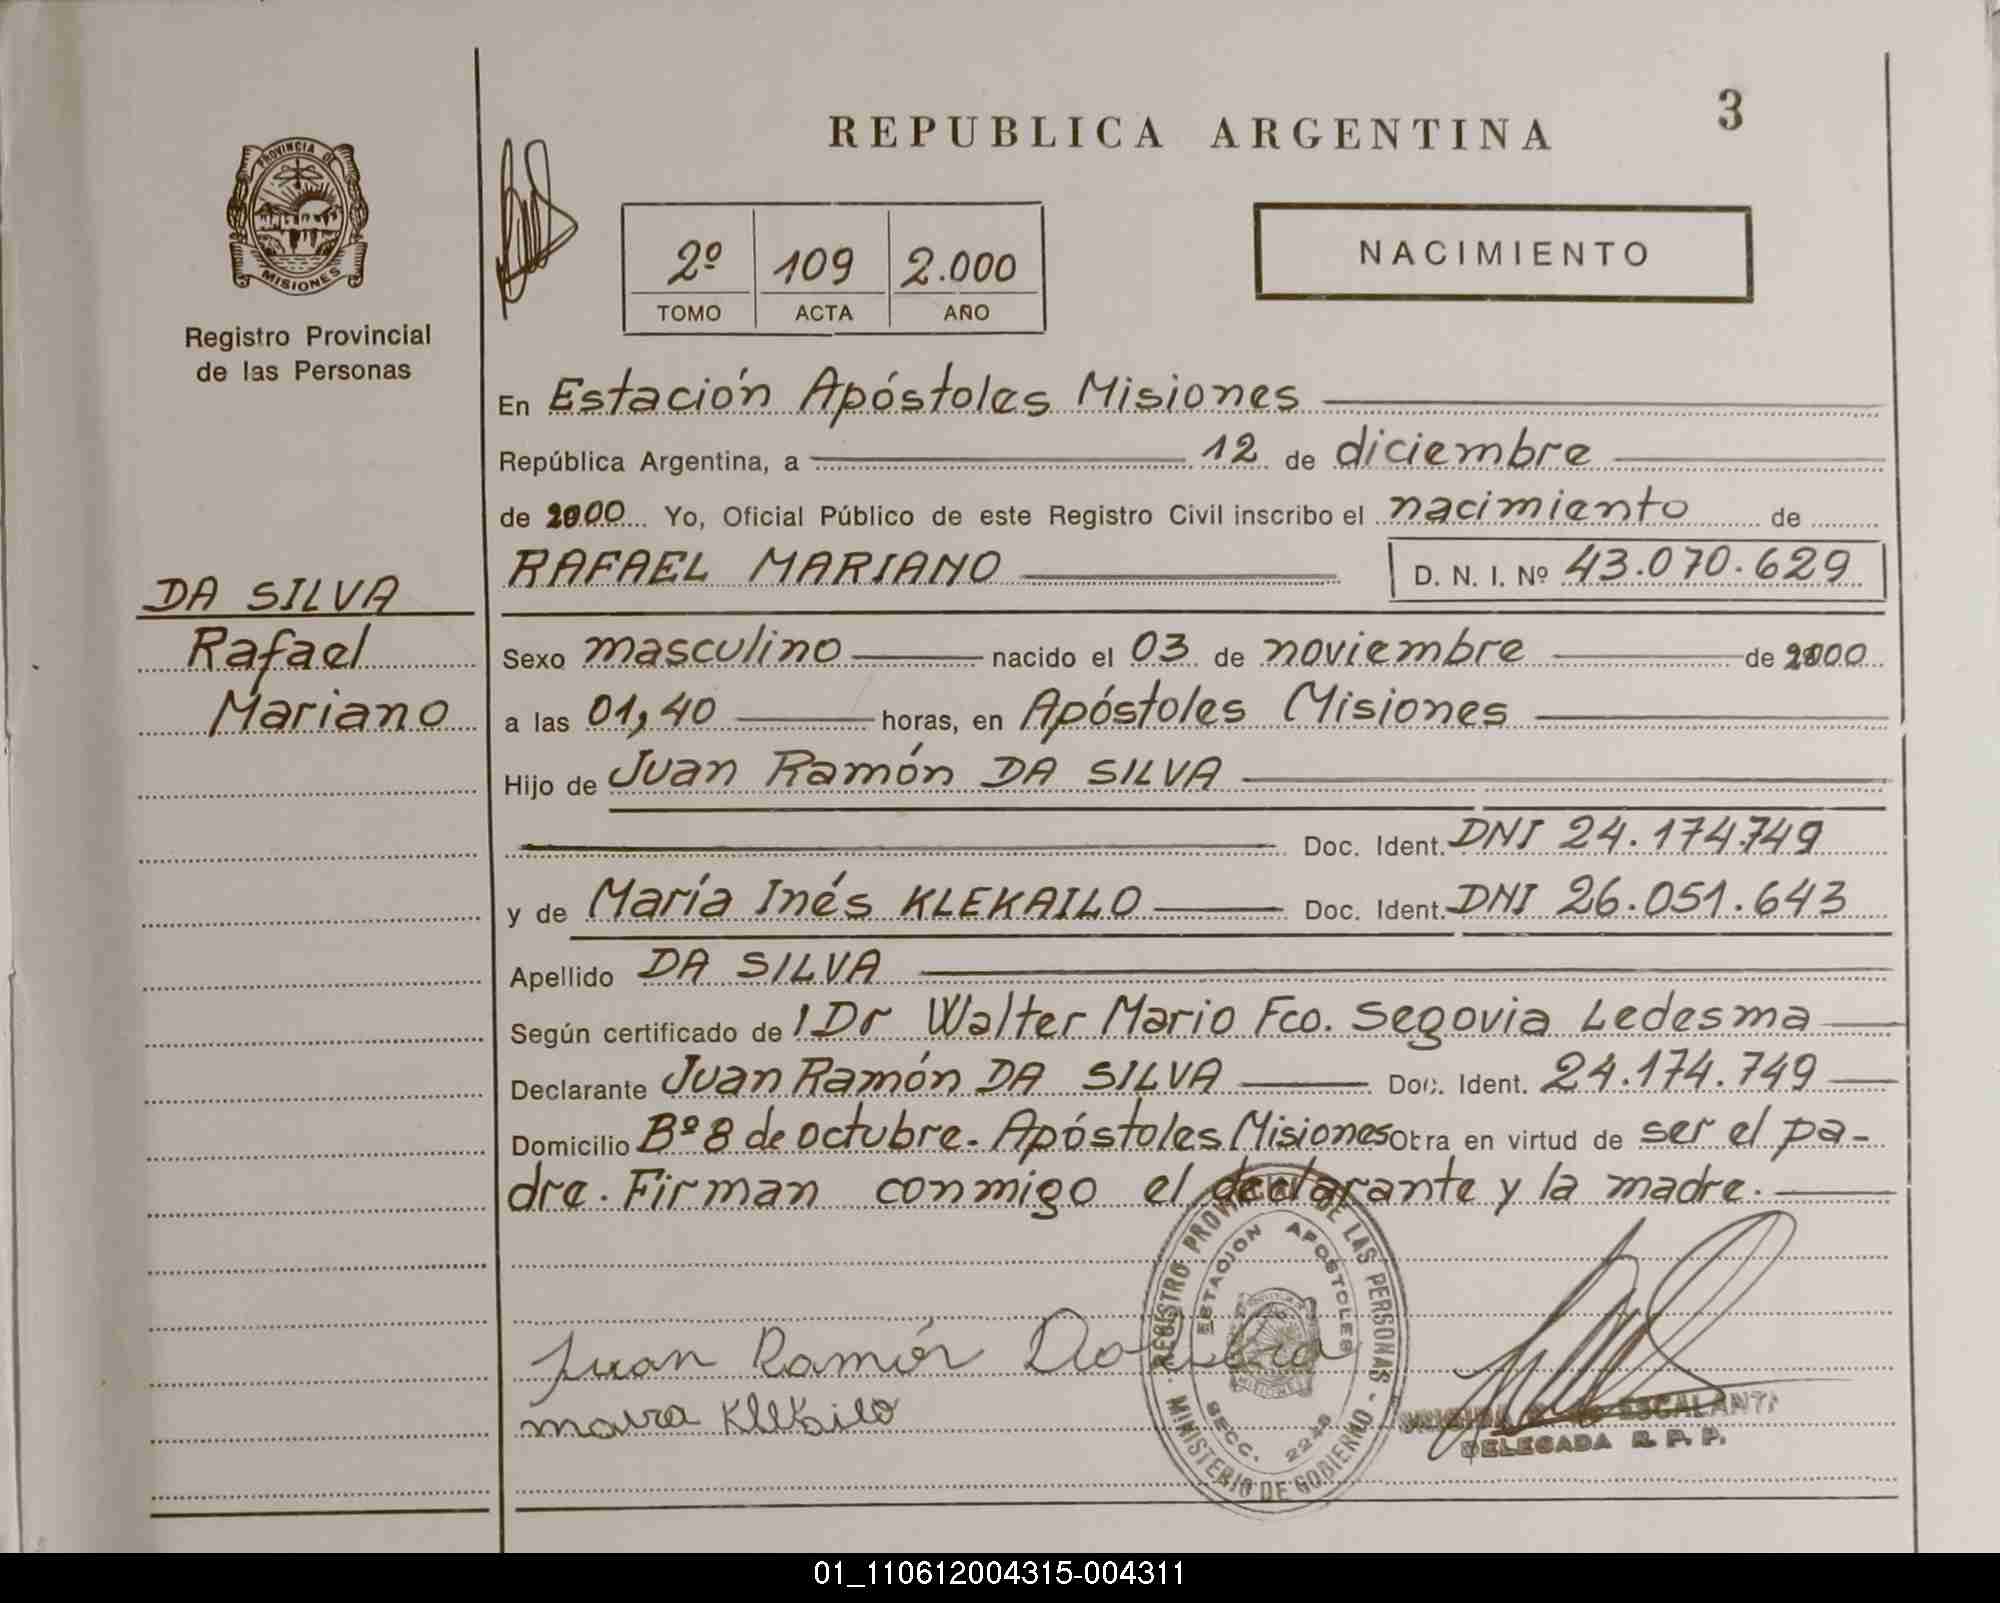 REPUBLICA ARGENTINA
3
PROVINCIA DE
MISIONES
Registro Provincial
de las Personas
2º 109 2.000
TOMO ACTA AÑO
NACIMIENTO
En Estación Apóstoles Misiones
República Argentina, a 12 de diciembre
de 2000 Yo, Oficial Público de este Registro Civil inscribo el nacimiento de
RAFAEL MARIANO D. N. I. Nº 43.070.629
DA SILVA
Rafael
Mariano
Sexo masculino nacido el 03 de noviembre de 2000
a las 01,40 horas, en Apóstoles Misiones
Hijo de Juan Ramón DA SILVA
Doc. Ident. DNI 24.174.749
y de María Inés KLEKAILO Doc. Ident. DNI 26.051.643
Apellido DA SILVA
Según certificado de 1 Dr Walter Mario Fco. Segovia Ledesma
Declarante Juan Ramón DA SILVA Doc. Ident. 24.174.749
Domicilio Bº 8 de octubre. Apóstoles Misiones Obra en virtud de ser el pa-
dre. Firman conmigo el declarante y la madre.
REGISTRO PROVINCIAL DE LAS PERSONAS - MINISTERIO DE GOBIERNO -
ESTACION APOSTOLES
SECC. 2246
MISIONES
Juan Ramón Da Silva
Klekailo
ESCALANTE
DELEGADA R. P. P.
01_110612004315-004311